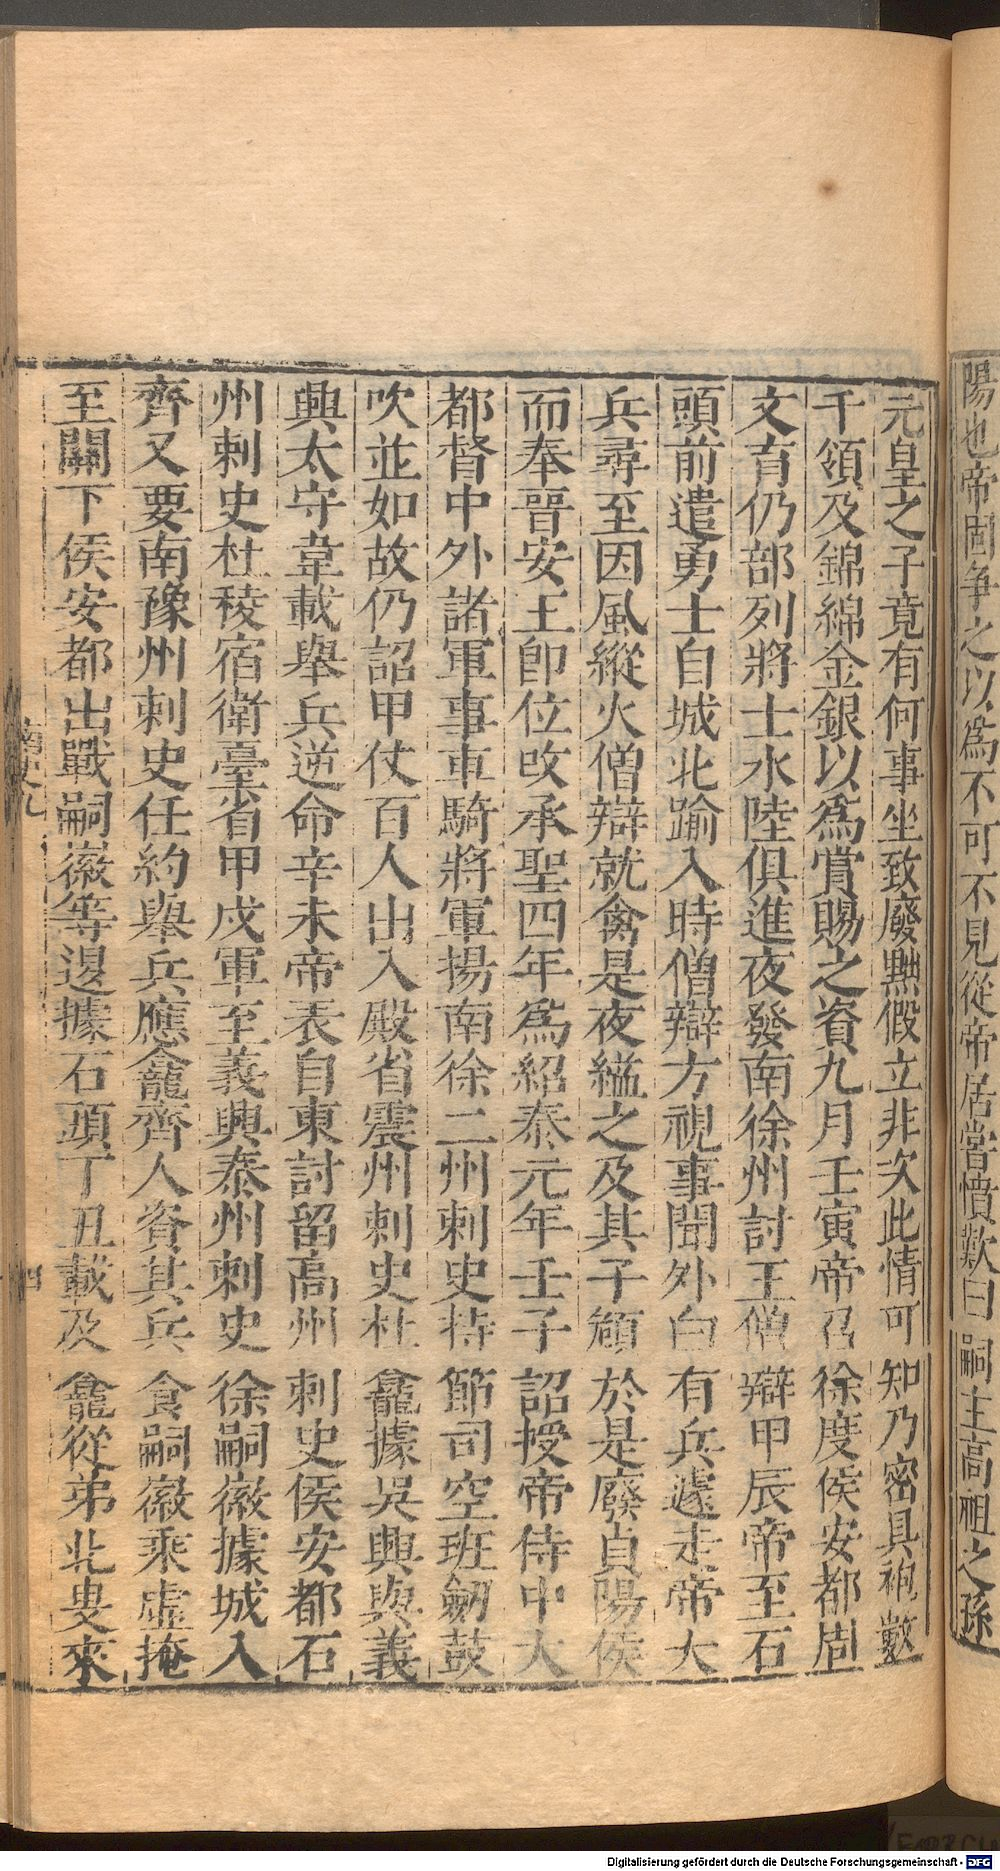 陽也帝固爭之以爲不可不見從帝居嘗憤歎曰嗣主高祖之孫
元皇之子竟有何事坐致廢黜假立非次此情可知乃密具袍數
千領及錦綿金銀以爲賞賜之資九月壬寅帝召徐度侯安都周
文育仍部列將士水陸俱進夜發南徐州討王僧辯甲辰帝至石
頭前遣勇士自城北踰入時僧辯方視事聞外白有兵遽走帝大
兵尋至因風縱火僧辯就禽是夜縊之及其子頠於是廢貞陽侯
而奉晉安王卽位改承聖四年爲紹泰元年壬子詔授帝侍中大
都督中外諸軍事車騎將軍揚南徐二州刺史持節司空班劒鼓
吹並如故仍詔甲仗百人出入殿省震州刺史杜龕據吳興與義
興太守韋載舉兵逆命辛未帝表自東討留高州刺史侯安都石
州刺史杜稜宿衛臺省甲戌軍至義興泰州刺史徐嗣徽據城入
齊又要南豫州刺史任約舉兵應龕齊人資其兵食嗣徽乘虛掩
至闕下侯安都出戰嗣徽等退據石頭丁丑載及龕從弟北叟來
南史九
四
Digitalisierung gefördert durch die Deutsche Forschungsgemeinschaft - DFG